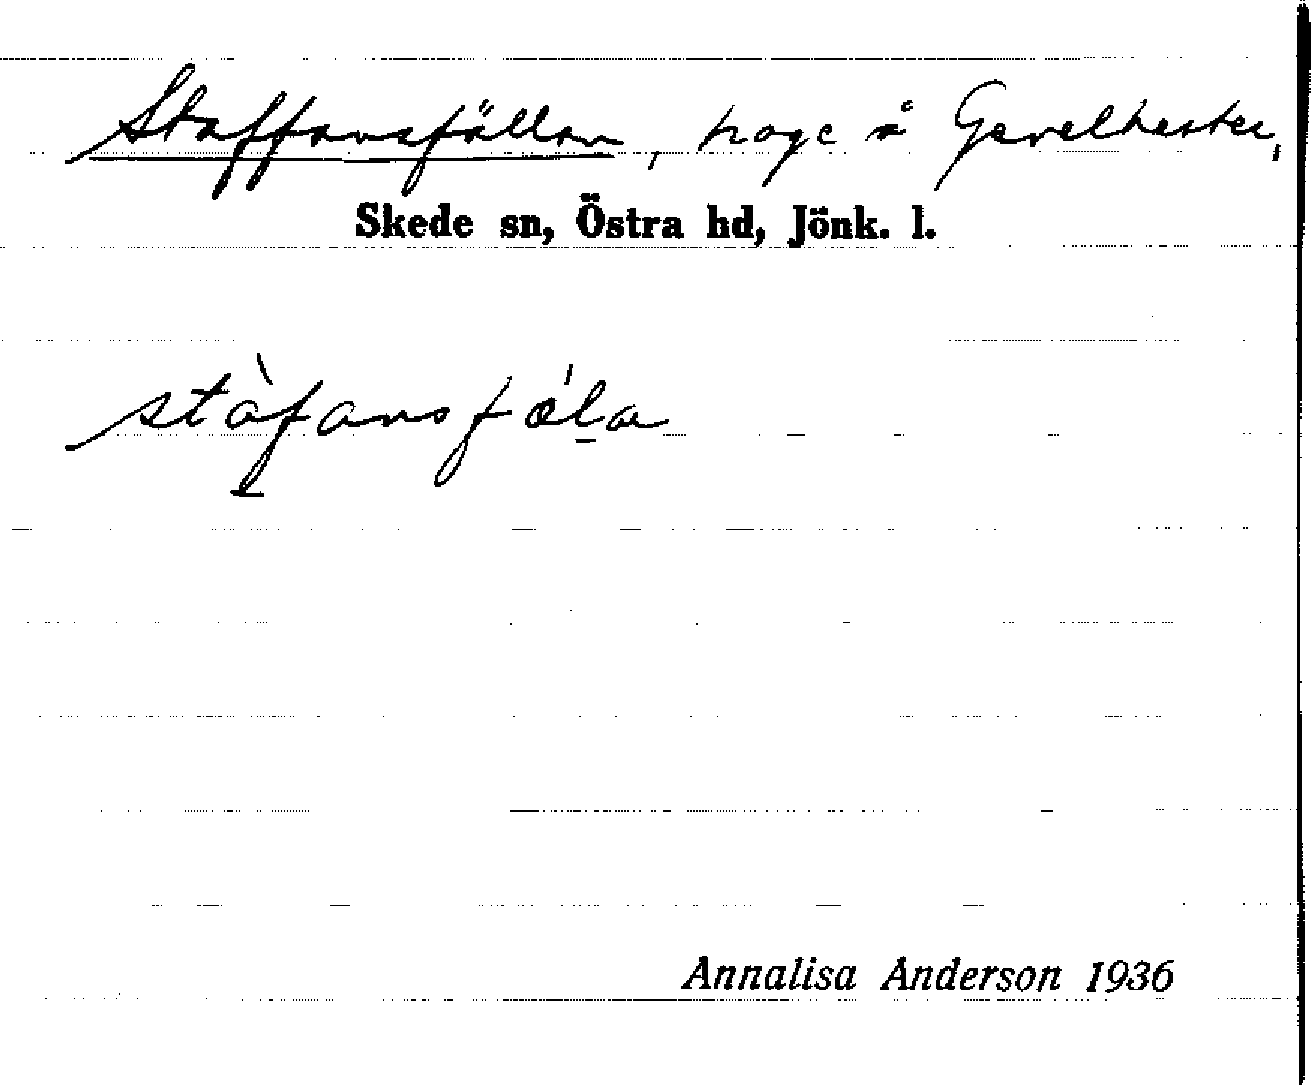 Staffansfällan, hage å Gavelhester,
Skede sn, Östra hd, Jönk. l.
stàfansfǽla
Annalisa Anderson 1936